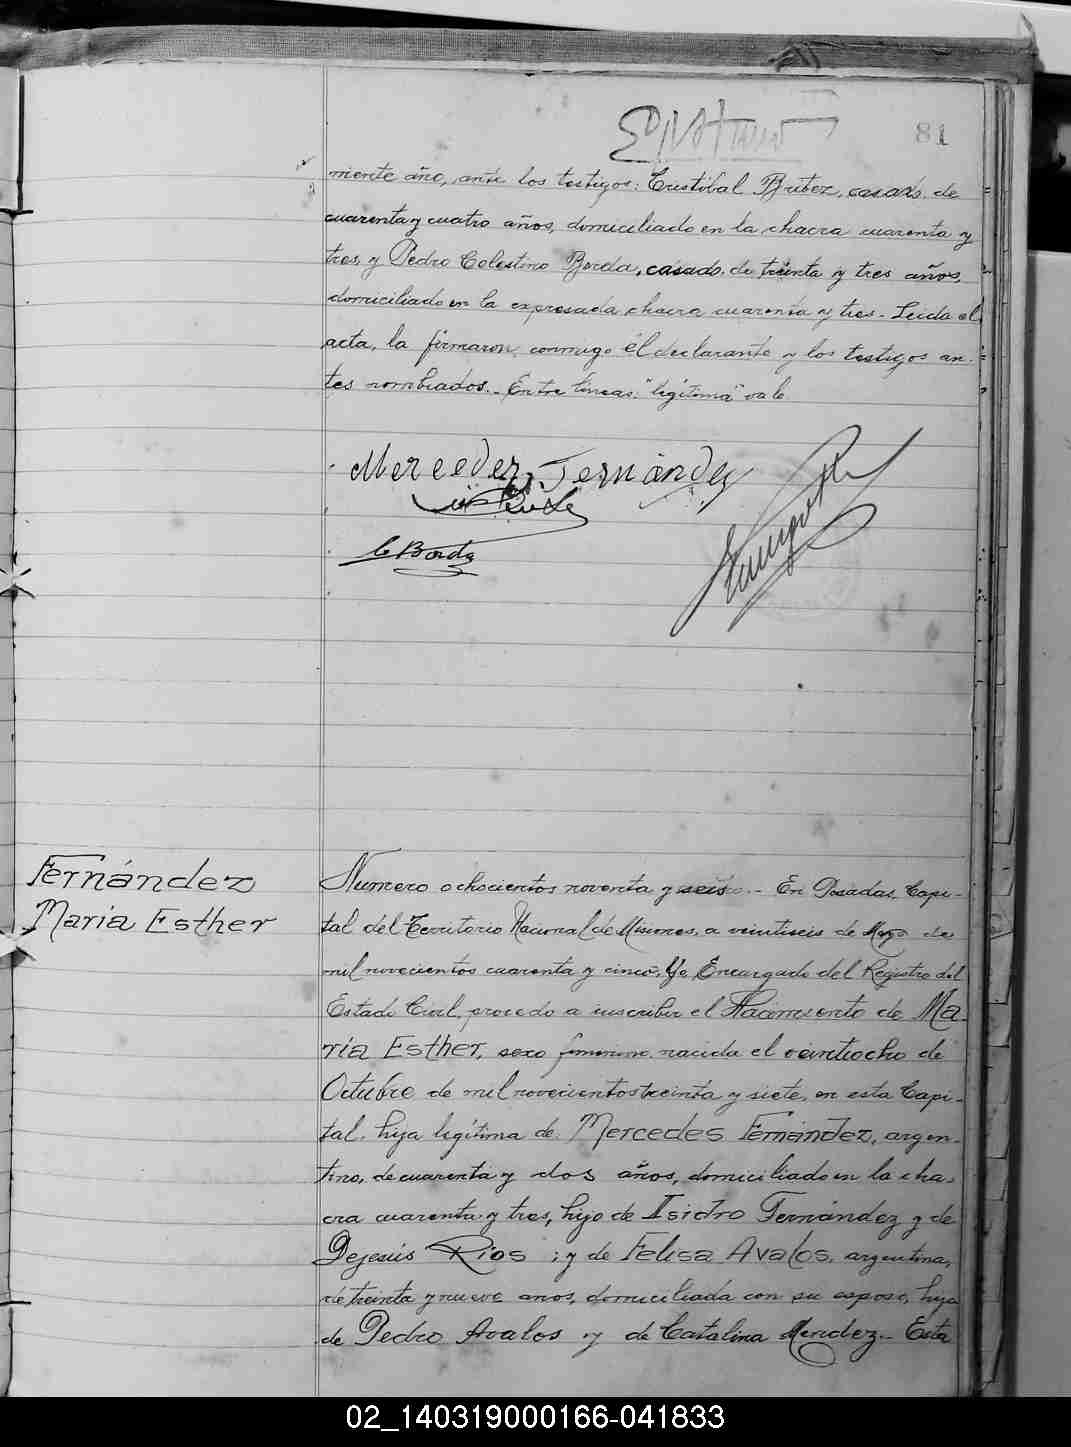 81
miente año, ante los testigos: Cristóbal Brítez, casado, de
cuarenta y cuatro años, domiciliado en la chacra cuarenta y
tres y Pedro Celestino Borda, casado, de treinta y tres años,
domiciliado en la expresada chacra cuarenta y tres. Leida el
acta, la firmaron conmigo él declarante y los testigos an-
tes nombrados.- Entre líneas: "legítima" vale
Mercedes Fernández
C Borda
Fernández
María Esther
Numero ochocientos noventa y seis.- En Posadas, Capi-
tal del Territorio Nacional de Misiones, a veintiseis de Mayo de
mil novecientos cuarenta y cinco, Yo, Encargado del Registro del
Estado Civil, procedo a inscribir el Nacimiento de Ma-
ría Esther, sexo femenino, nacida el veintiocho de
Octubre de mil novecientos treinta y siete, en esta Capi-
tal, hija legítima de Mercedes Fernández, argen-
tino, de cuarenta y dos años, domiciliado en la cha-
cra cuarenta y tres, hijo de Isidro Fernández y de
Dejesús Ríos ; y de Felisa Avalos, argentina,
de treinta y nueve años, domiciliada con su esposo, hija
de Pedro Avalos y de Catalina Mendez.- Esta
02_140319000166-041833